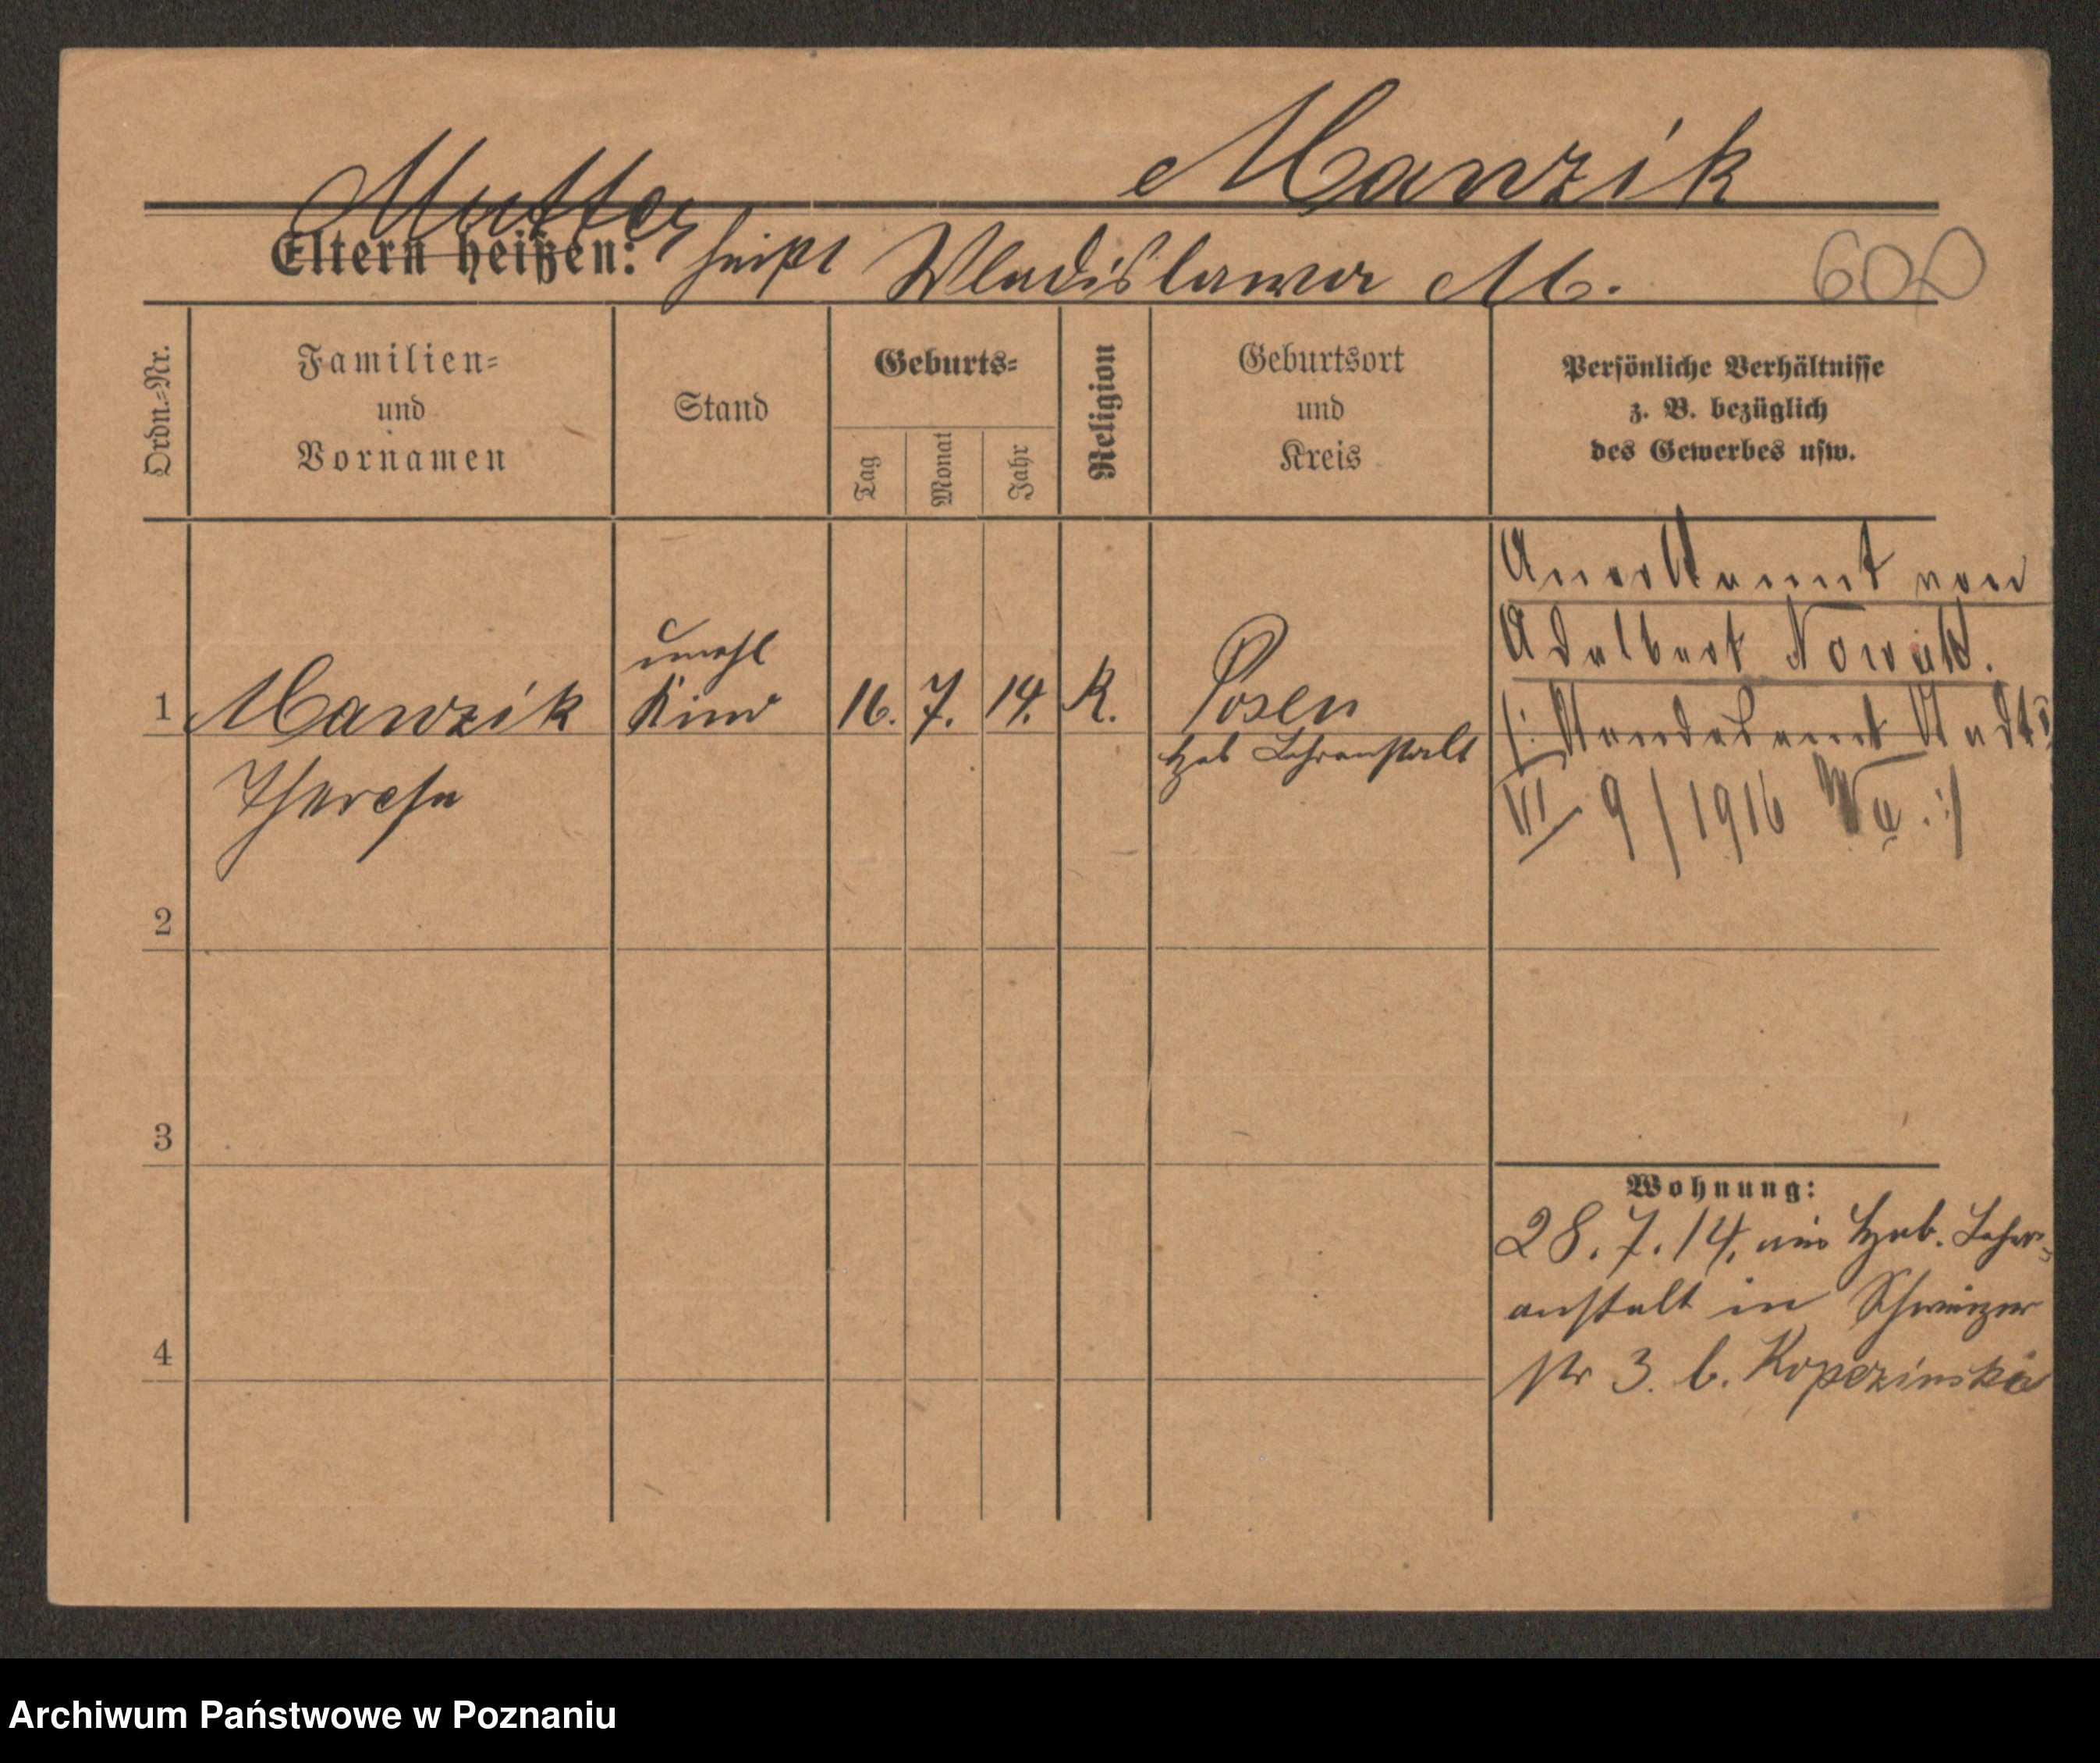 Manzik
Mutter
Eltern heißen: heißt Wladislawa M.
600
Ordn.-Nr.
Familien-
und
Vornamen
Stand
Geburts-
Tag
Monat
Jahr
Religion
Geburtsort
und
Kreis
Persönliche Verhältnisse
z. B. bezüglich
des Gewerbes usw.
1
Manzik
Theresa
unehl
Kind
16. 7. 14.
K.
Posen
Heb Lehranstalt
Anerkannt von
Adalbert Nowak.
(: Standesamt Stadt
VI 9/1916 :)
2
3
4
Wohnung:
28. 7. 14. aus Heb. Lehr-
anstalt in
str 3. b. Kopczinska
Archiwum Państwowe w Poznaniu